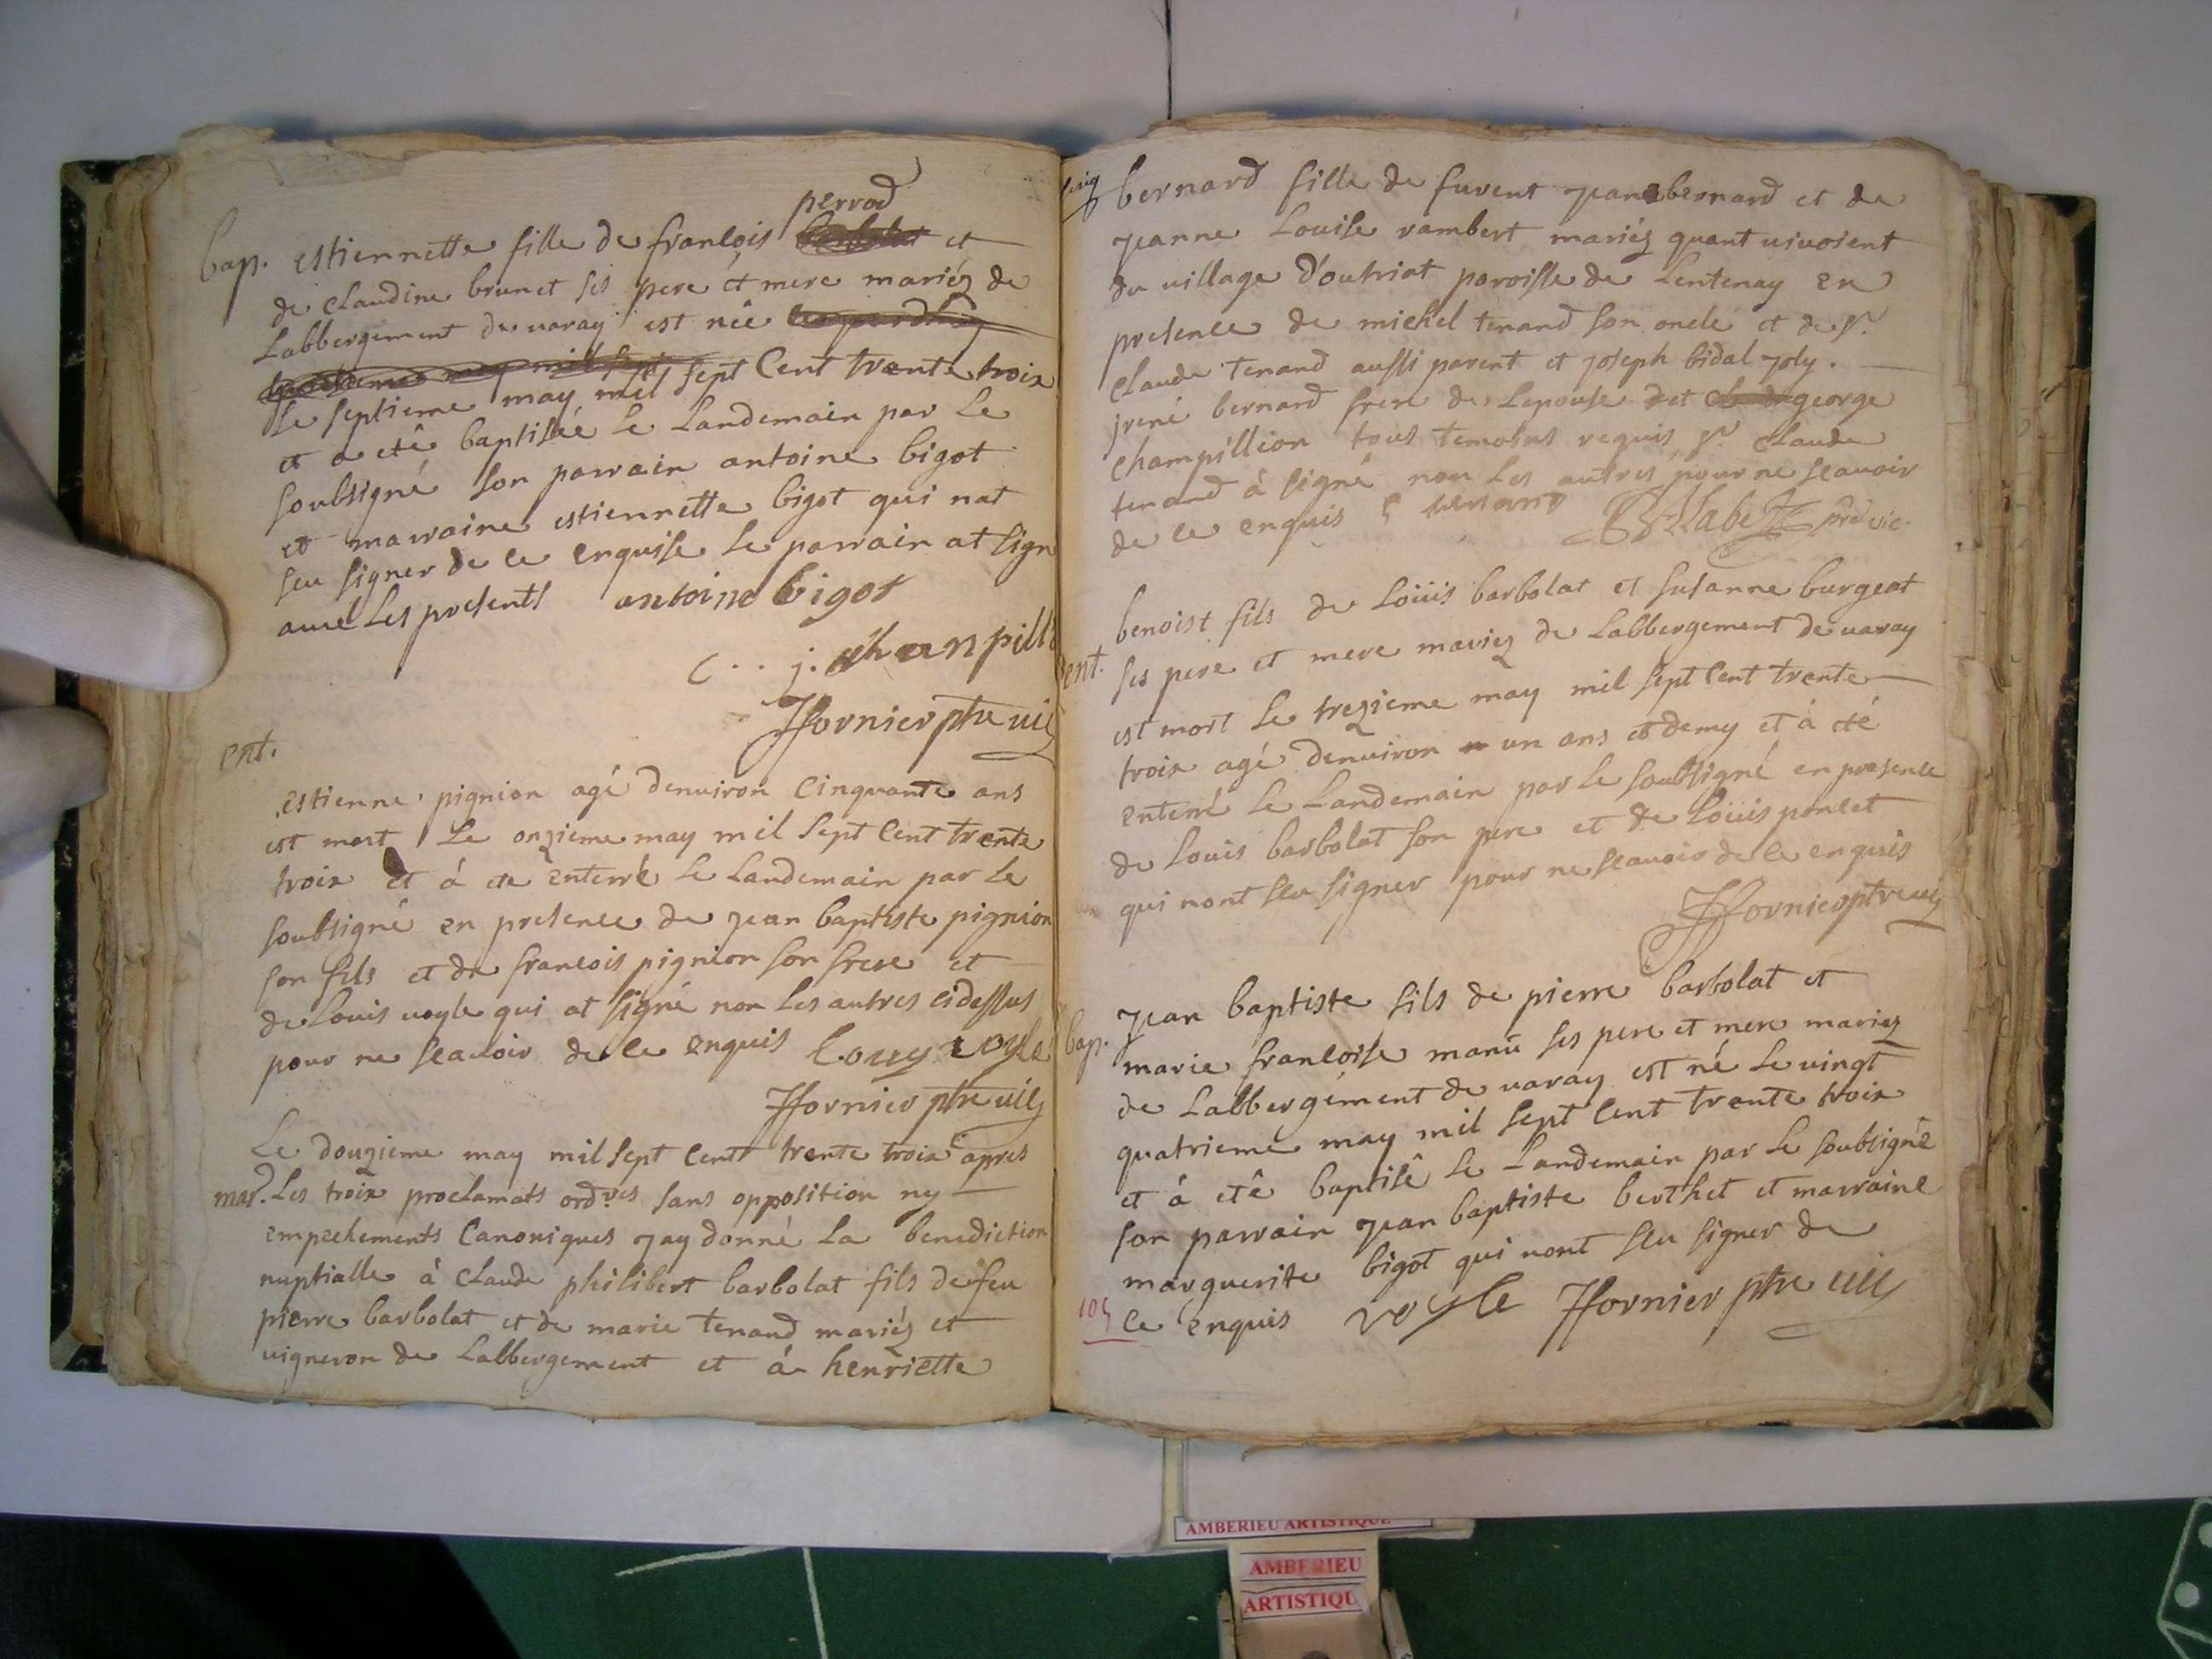 perrod
bap. estiennette fille de francois barbolat et
de claudine brunet ses pere et mere mariéz de
Labbergement de varay est née
le septieme may mil sept Cent trente troix
et a eté baptisée le Landemain par le
soubsigné son parrain antoine bigot
et marraine estiennette bigot qui nat
seu signer de ce enquise le parrain at sign
avec Les presents antoine bigot
c .. j. champilli
ffornier ptre vic
ent.
estienne pignion agé denuiron Cinquante ans
est mort Le onzieme may mil sept Cent trente
troix et á ete enterré le Landemain par le
soubsigné en presence de jean baptiste pignion
son fils et de francois pignion son frere et
de Louis voyle qui at signé non les autres cidessus
pour ne scavoir de ce enquis Louy voyle
ffornier ptre vic
Le douzieme may mil sept Cent trente troix apres
mar. Les troix proclamats ord.res sans opposition ny
empechements Canoniques jay donné La benediction
nuptialle à claude philibert barbolat fils de feu
pierre barbolat et de marie tenand mariéz et
vigneron de Labbergement et á henriette
bernard fille de furent jean bernard et de
jeanne Louise rambert mariéz quant vivoient
du village d'outriat paroisse de Lentenay en
presence de michel tenand son oncle et de sr
claude tenand aussi parent et joseph bidal joly.
jrené bernard frere de Lepouse et george
champillion tous temoins requis sr claude
tenand à signé non les autres pour ne scavoir
de ce enquis c tenand vic.
benoist fils de Loüis barbolat et susanne burgeat
ent. ses pere et mere mariez de Labbergement de varay
est mort le trezieme may mil sept Cent trente
troix agé denviron un ans et demy et à eté
enterré le Landemain par le soubsigné en presence
de Louis barbolat son pere et de Loüis poncet
qui nont seu signer pour ne scavoir de ce enquis
ffornier ptre vic
jean baptiste fils de pierre barbolat et
bap. marie francoise manū ses pere et mere mariez
de Labbergement de varay est né le vingt
quatrieme may mil sept Cent trente troix
et à eté baptisé le Landemain par le soubsigné
son parrain jean baptiste berthet et marraine
marguerite bigot qui nont seu signer de
ce enquis voyle ffornier ptre vic
AMBERIEU ARTISTIQUE
AMBERIEU
ARTISTIQU